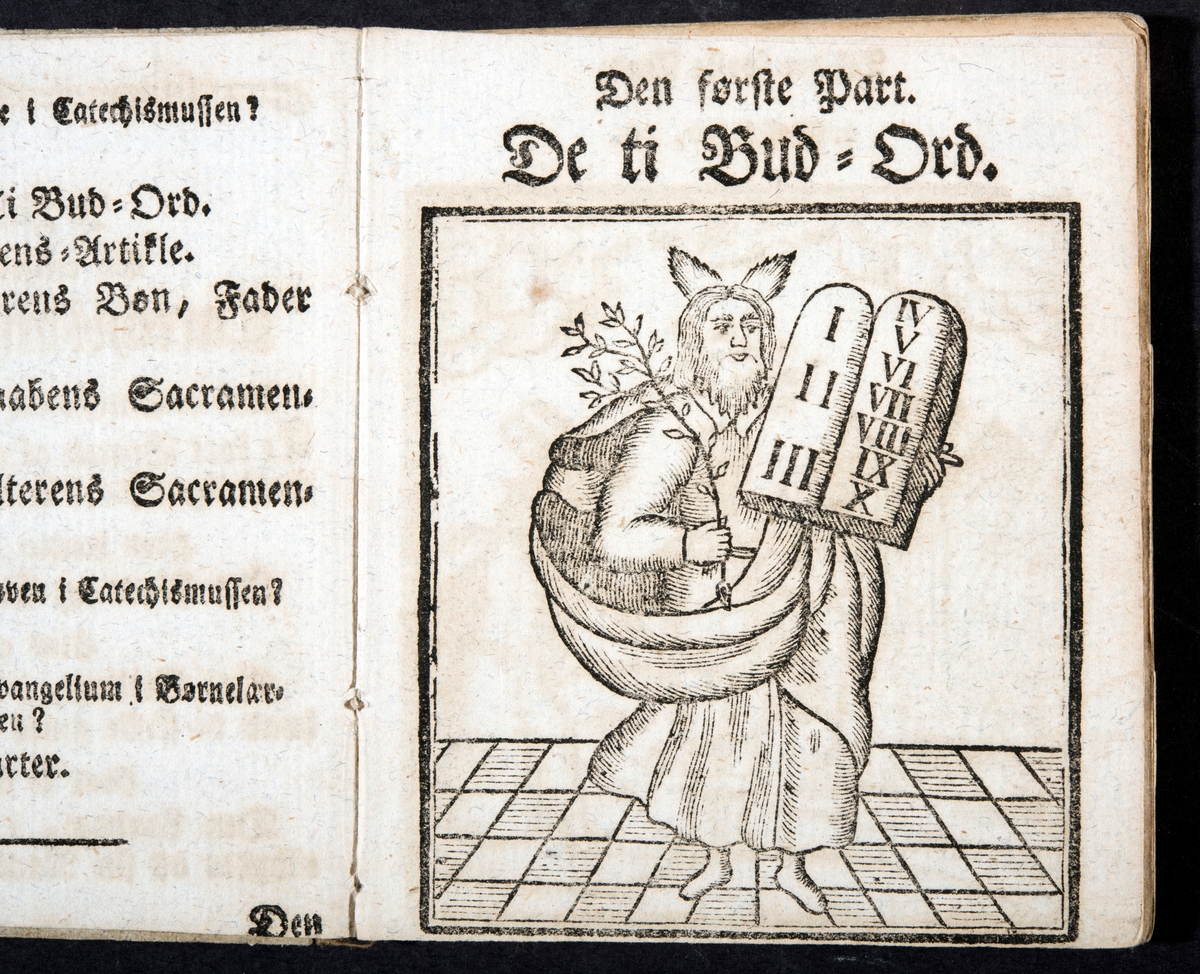 e i Catechismussen?
Ti Bud-Ord.
ens-Artikle.
rens Bøn, Fader
aabens Sacramen-
lterens Sacramen-
oven i Catechismussen?
vangelium i Børnelær-
en?
arter.
Den
Den første Part.
De ti Bud-Ord.
I
II
III
IV
V
VI
VII
VIII
IX
X